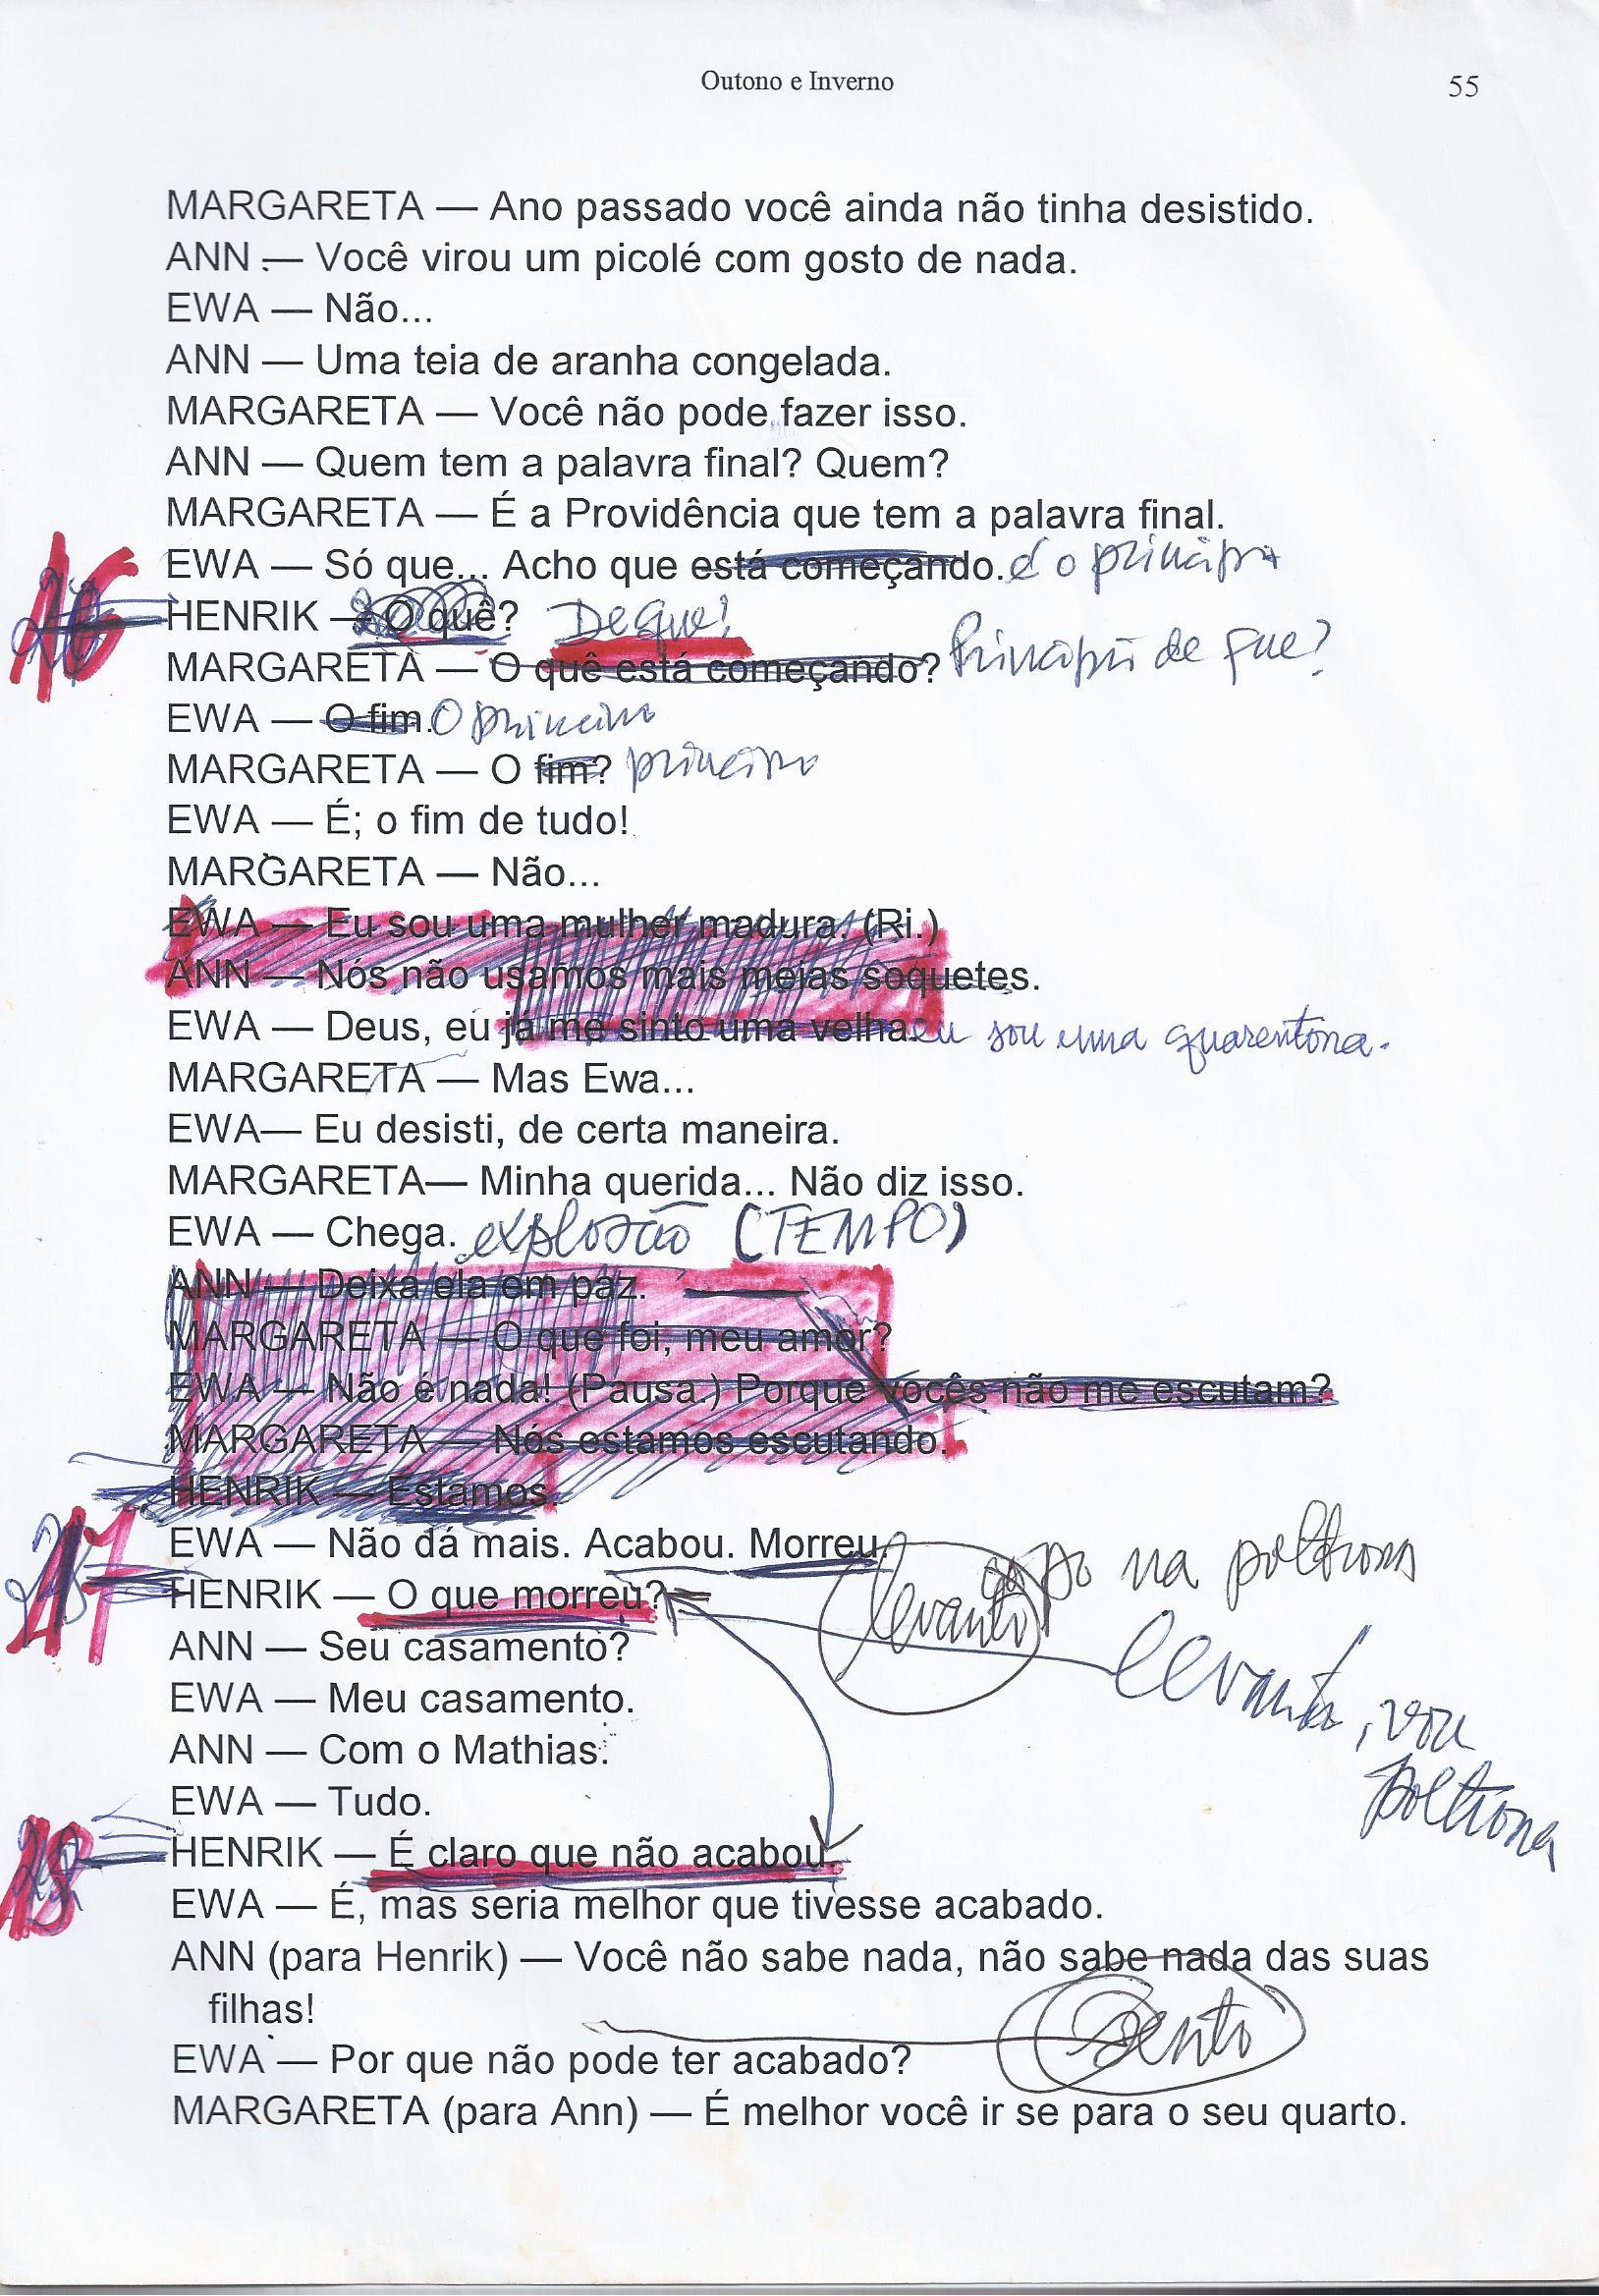 Outono e Inverno 55
MARGARETA — Ano passado você ainda não tinha desistido.
ANN — Você virou um picolé com gosto de nada.
EWA — Não...
ANN — Uma teia de aranha congelada.
MARGARETA — Você não pode fazer isso.
ANN — Quem tem a palavra final? Quem?
MARGARETA — É a Providência que tem a palavra final.
EWA — Só que... Acho que está começando. é o princípio
HENRIK — O quê? De que?
MARGARETA — O quê está começando? Princípio de que?
EWA — O fim. O princípio
MARGARETA — O fim? princípio
EWA — É; o fim de tudo!
MARGARETA — Não...
EWA — Eu sou uma mulher madura. (Ri.)
ANN — Nós não usamos mais meias soquetes.
EWA — Deus, eu já me sinto uma velha. eu sou uma quarentona.
MARGARETA — Mas Ewa...
EWA— Eu desisti, de certa maneira.
MARGARETA— Minha querida... Não diz isso.
EWA — Chega. explosão (TEMPO)
ANN — Deixa ela em paz.
MARGARETA — O que foi, meu amor?
EWA — Não é nada! (Pausa.) Porque vocês não me escutam?
MARGARETA — Nós estamos escutando.
HENRIK — Estamos.
EWA — Não dá mais. Acabou. Morreu.
na poltrona
HENRIK — O que morreu?
levanto
ANN — Seu casamento?
levanto, vou
EWA — Meu casamento.
ANN — Com o Mathias.
poltrona
EWA — Tudo.
HENRIK — É claro que não acabou.
EWA — É, mas seria melhor que tivesse acabado.
ANN (para Henrik) — Você não sabe nada, não sabe nada das suas
filhas!
sento
EWA — Por que não pode ter acabado?
MARGARETA (para Ann) — É melhor você ir se para o seu quarto.